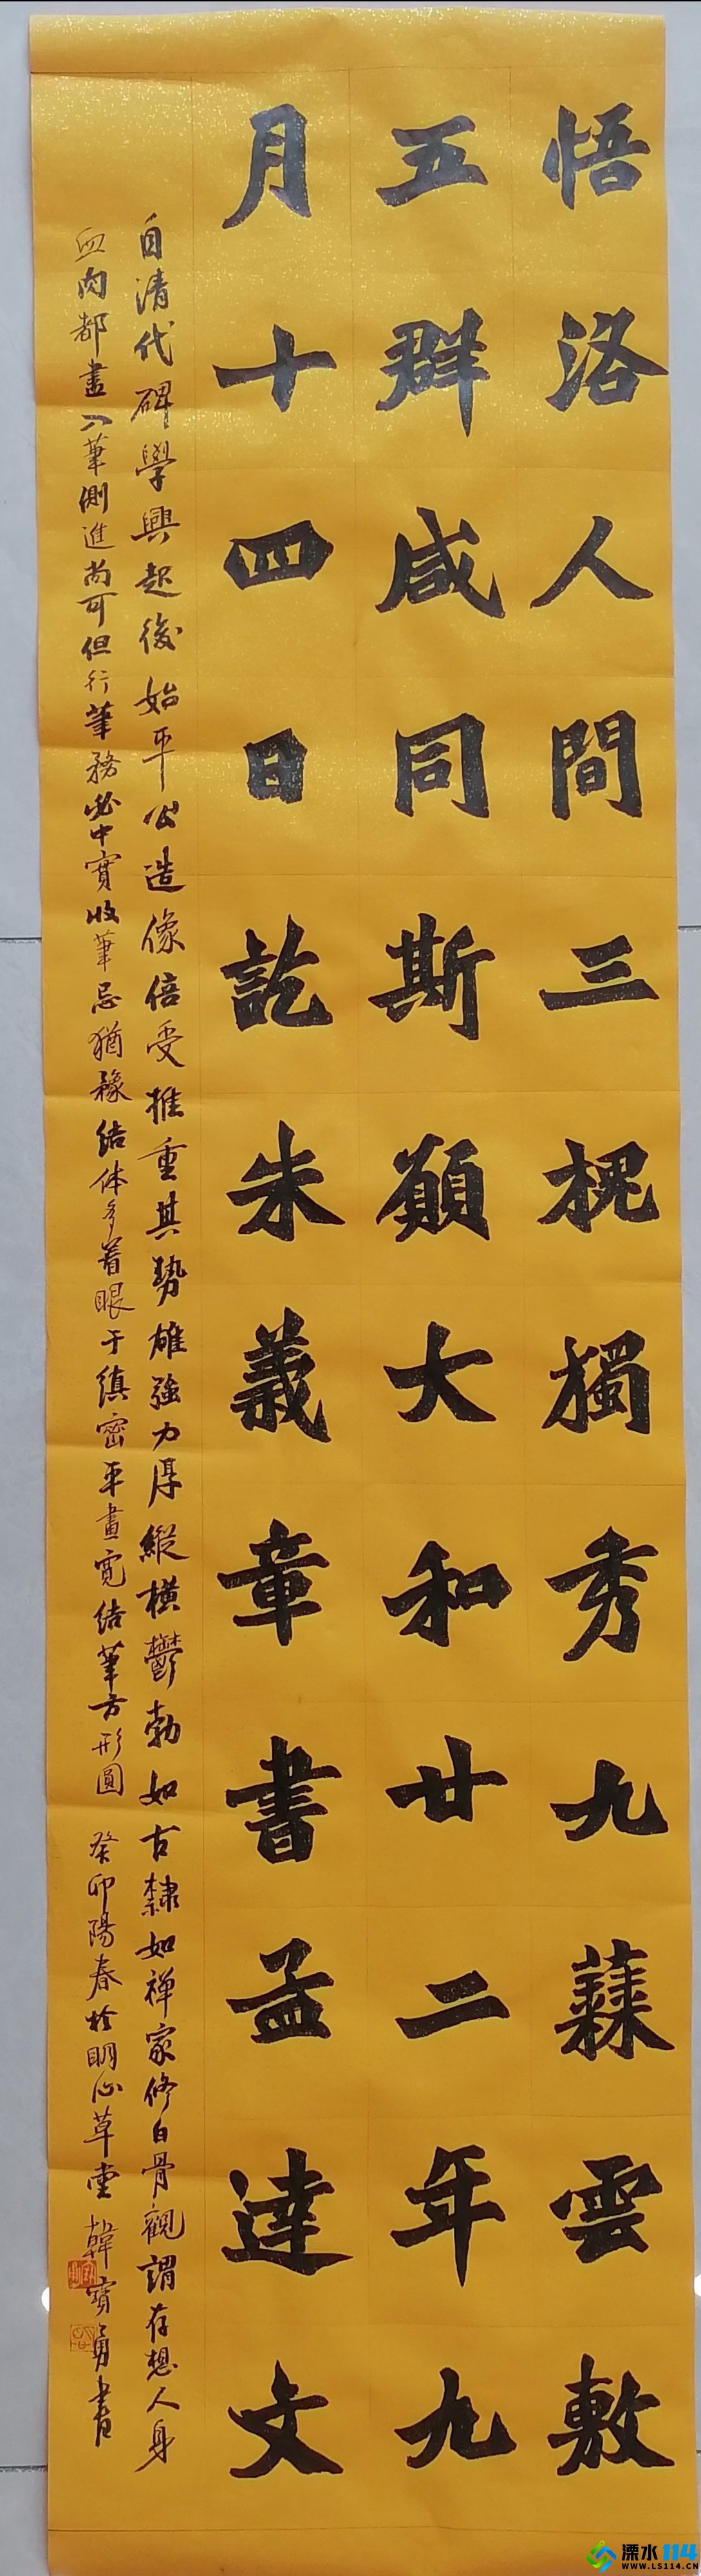 悟洛人間三槐獨秀九蕀雲敷
五群咸同斯願大和廿二年九
月十四日訖朱義章書孟達文
自清代碑學興起後始平公造像倍受推重其勢雄強力厚縱橫鬱勃如古隸如禅家修白骨觀謂存想人身
血肉都盡入筆側進尚可但行筆務必中實收筆忌猶豫结体多着眼于縝密平畫寬结筆方形圓
癸卯陽春於明心草堂韓寶勇書
溧水114
WWW.LS114.CN